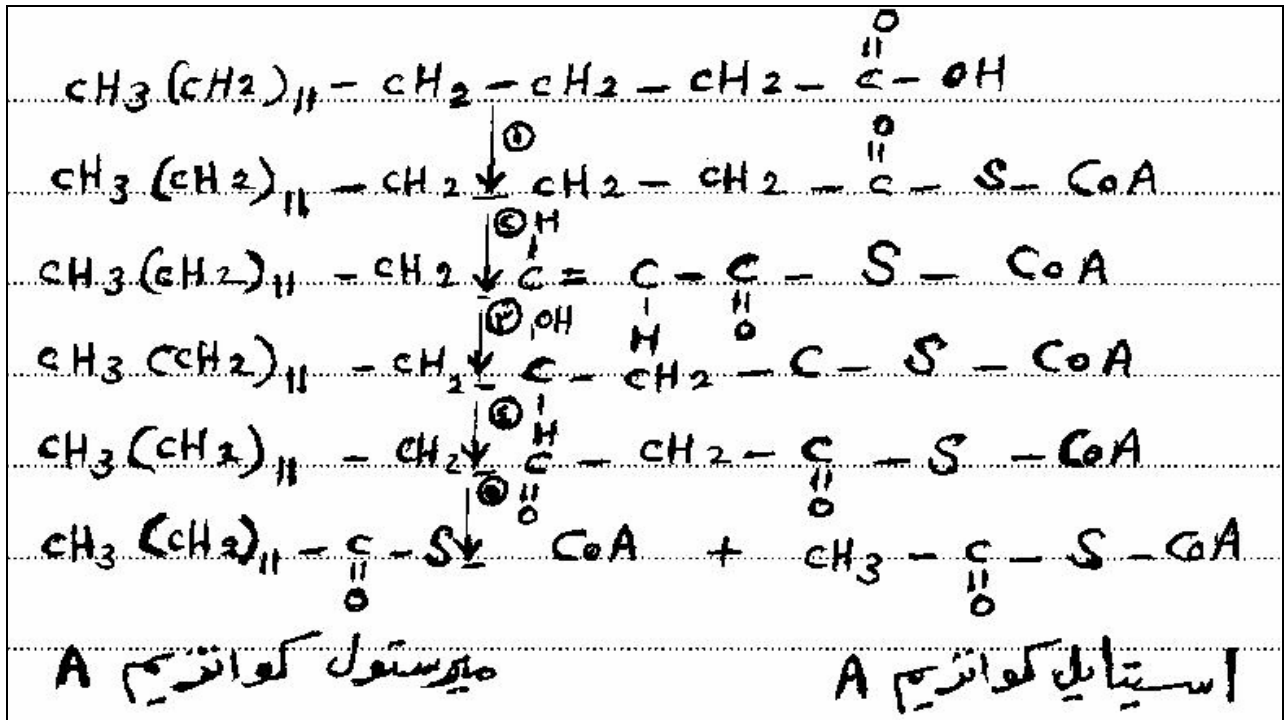 O
CH3(CH2)11 - CH2 - CH2 - CH2 - C - OH
① O
CH3(CH2)11 - CH2 - CH2 - CH2 - C - S - CoA
② H
CH3(CH2)11 - CH2 - C = C - C - S - CoA
③ OH H O
CH3(CH2)11 - CH2 - C - CH2 - C - S - CoA
④ H
CH3(CH2)11 - CH2 - C - CH2 - C - S - CoA
⑤ O O
CH3(CH2)11 - C - S - CoA + CH3 - C - S - CoA
O O
میرستول کوانزیم A اسیتایل کوانزیم A